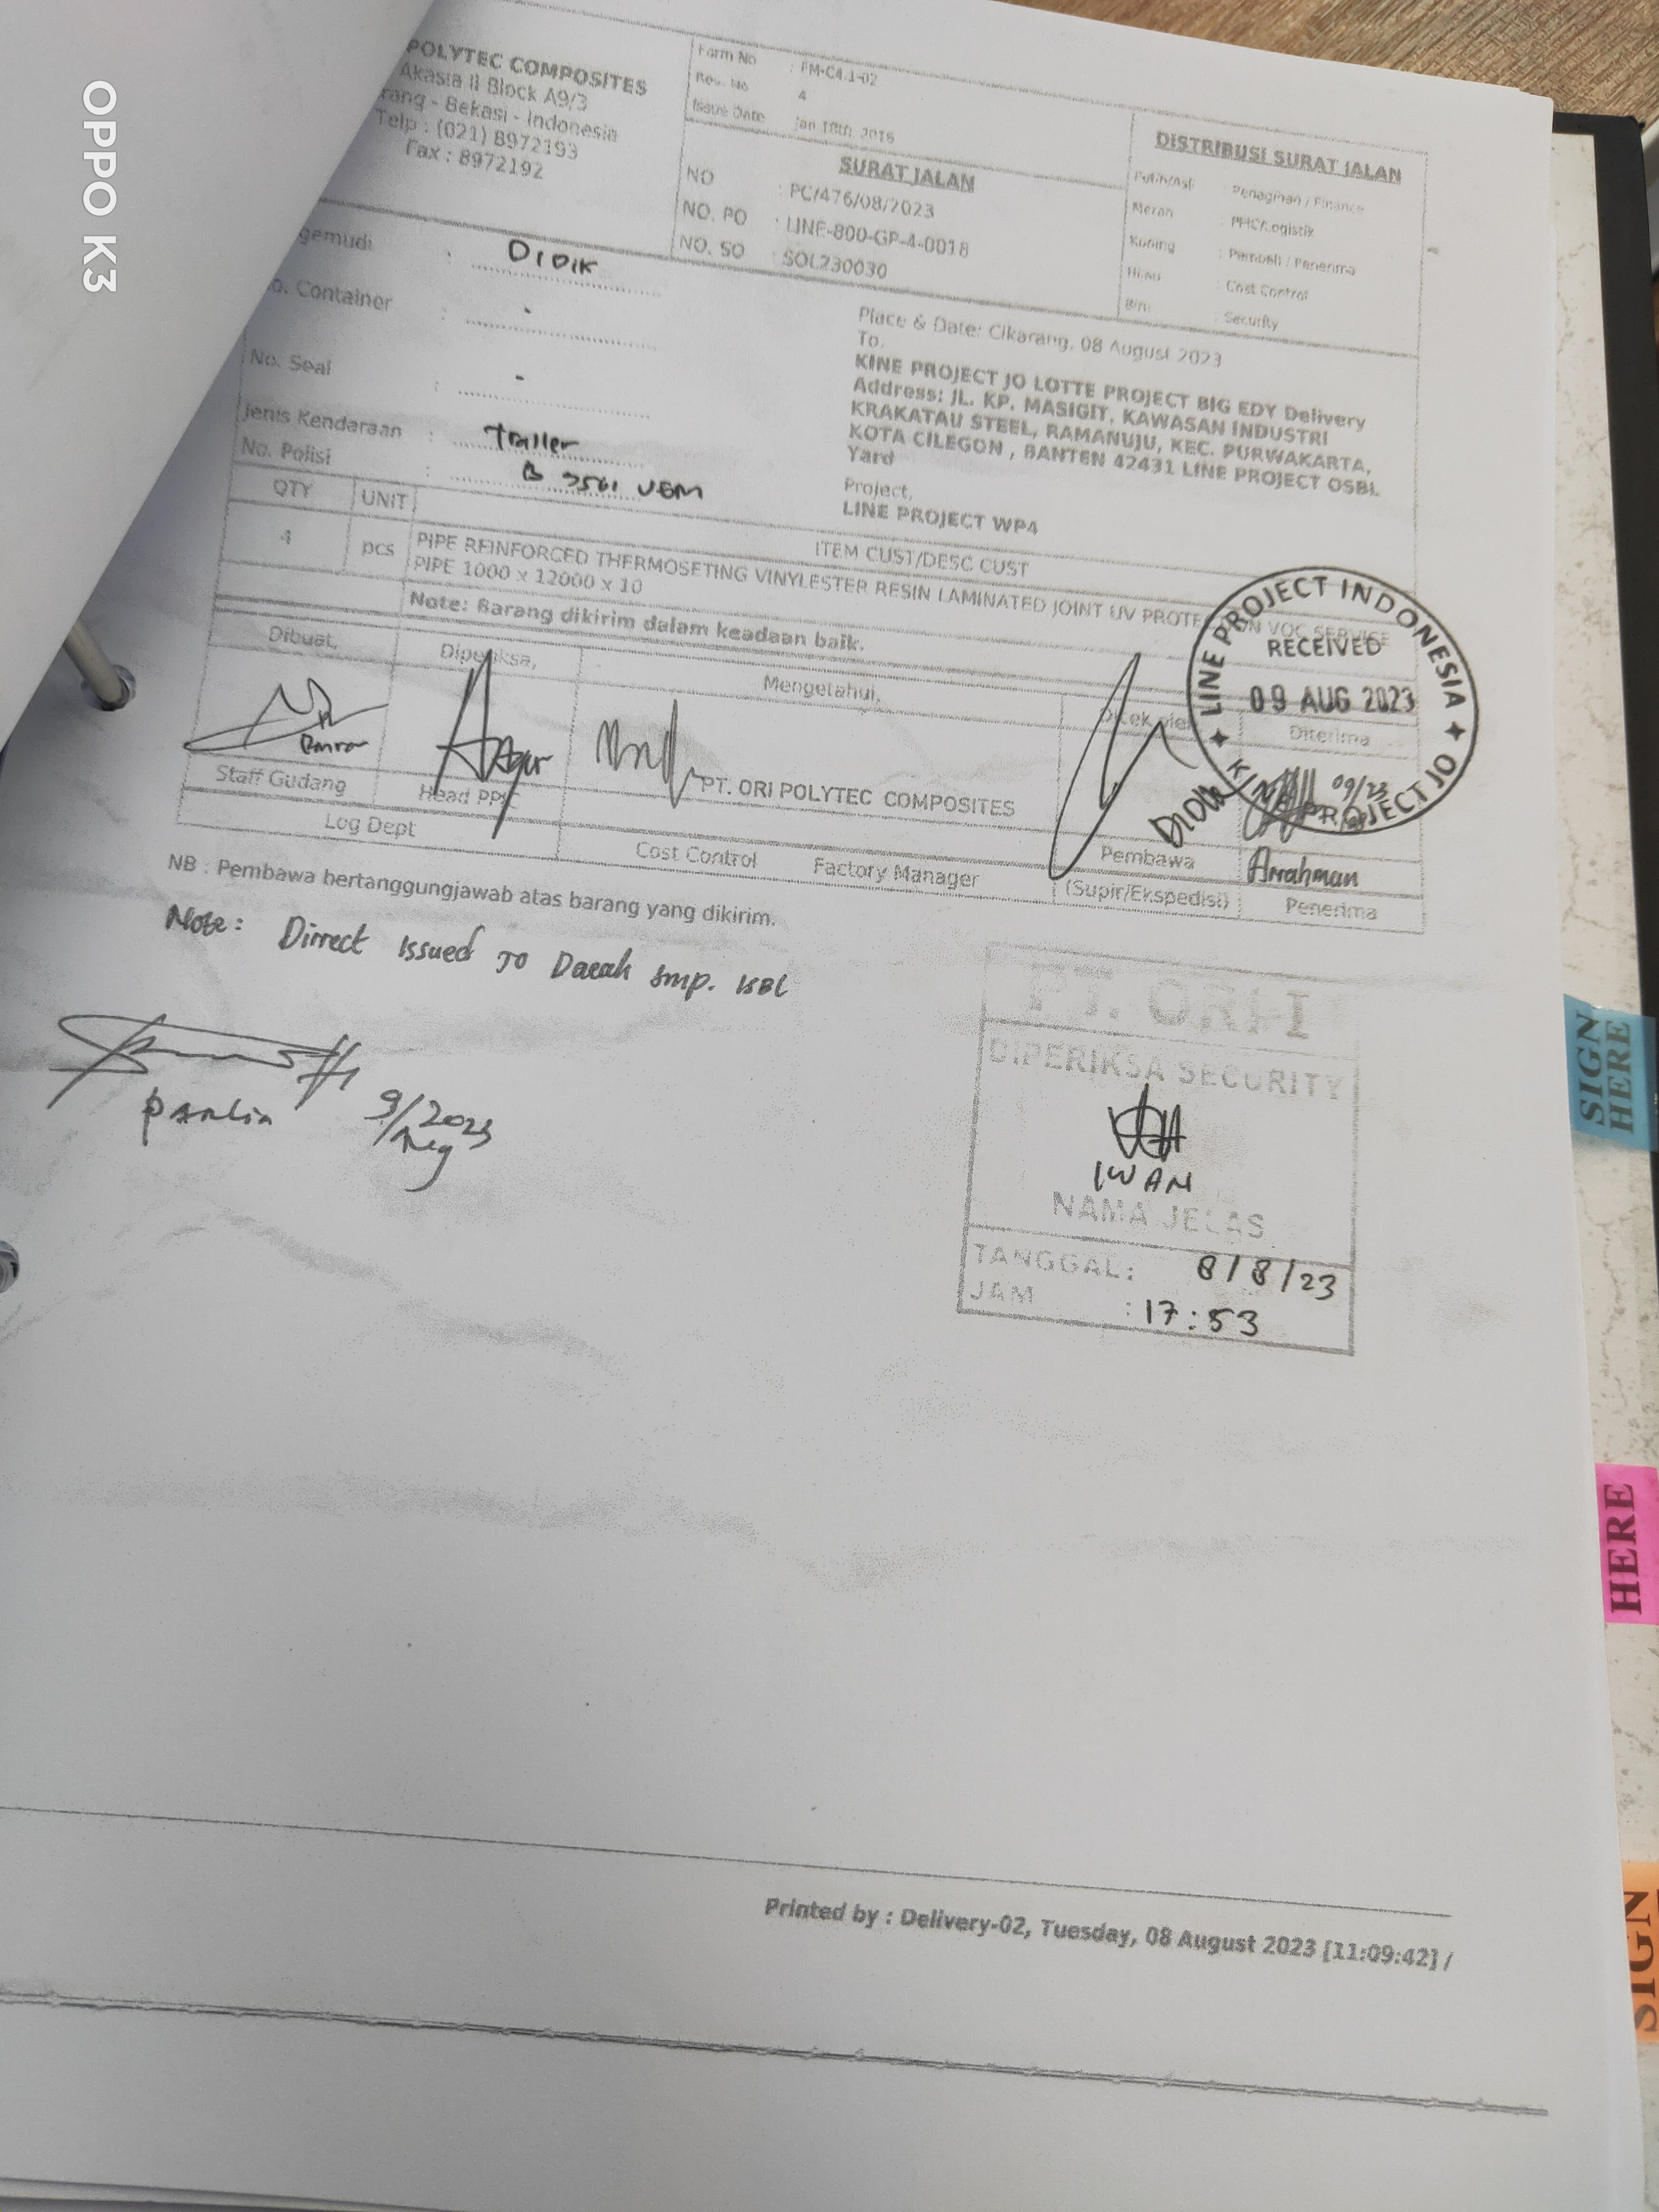 OPPO K3
POLYTEC COMPOSITES
Akasia II Block A9/3
rang - Bekasi - Indonesia
Telp : (021) 8972193
Fax : 8972192
Form No : FM-C4.1-02
Rev. No 4
Issue Date Jan 18th, 2016
SURAT JALAN
NO : PC/476/08/2023
NO. PO : LINE-800-GP-4-0018
NO. SO : SOL230030
DISTRIBUSI SURAT JALAN
Putih/Asli : Penagihan / Finance
Merah : PPIC/Logistik
Kuning : Pembeli / Penerima
Hijau : Cost Control
Biru : Security
gemudi : DIDIK
o. Container : -
No. Seal : -
Jenis Kendaraan : Trailer
No. Polisi : B UEM
Place & Date: Cikarang, 08 August 2023
To.
KINE PROJECT JO LOTTE PROJECT BIG EDY Delivery
Address: JL. KP. MASIGIT, KAWASAN INDUSTRI
KRAKATAU STEEL, RAMANUJU, KEC. PURWAKARTA,
KOTA CILEGON , BANTEN 42431 LINE PROJECT OSBL
Yard
Project,
LINE PROJECT WP4
QTY UNIT ITEM CUST/DESC CUST
4 pcs PIPE REINFORCED THERMOSETING VINYLESTER RESIN LAMINATED JOINT UV PROTECTION VOC SERVICE
PIPE 1000 x 12000 x 10
Note: Barang dikirim dalam keadaan baik.
LINE PROJECT INDONESIA
RECEIVED
09 AUG 2023
KINE PROJECT JO
Dibuat, Diperiksa, Mengetahui, Dicek oleh Diterima
PT. ORI POLYTEC COMPOSITES
DIDIK
09/23
Staff Gudang Head PPIC
Log Dept Cost Control Factory Manager
Pembawa Arrahman
(Supir/Ekspedisi) Penerima
NB : Pembawa bertanggungjawab atas barang yang dikirim.
Note: Dirrect Issued To Daeah smp. ISBL
9/Aug 2023
PT. ORPI
DIPERIKSA SECURITY
IWAN
NAMA JELAS
TANGGAL: 8/8/23
JAM : 17:53
SIGN
HERE
HERE
SIGN
Printed by : Delivery-02, Tuesday, 08 August 2023 [11:09:42] /